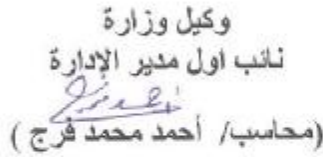 وكيل وزارة
نائب اول مدير الإدارة
(محاسب/ أحمد محمد فرج )